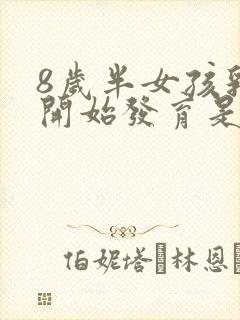 8歲半女孩
開始發育是
伯妮塔 林恩